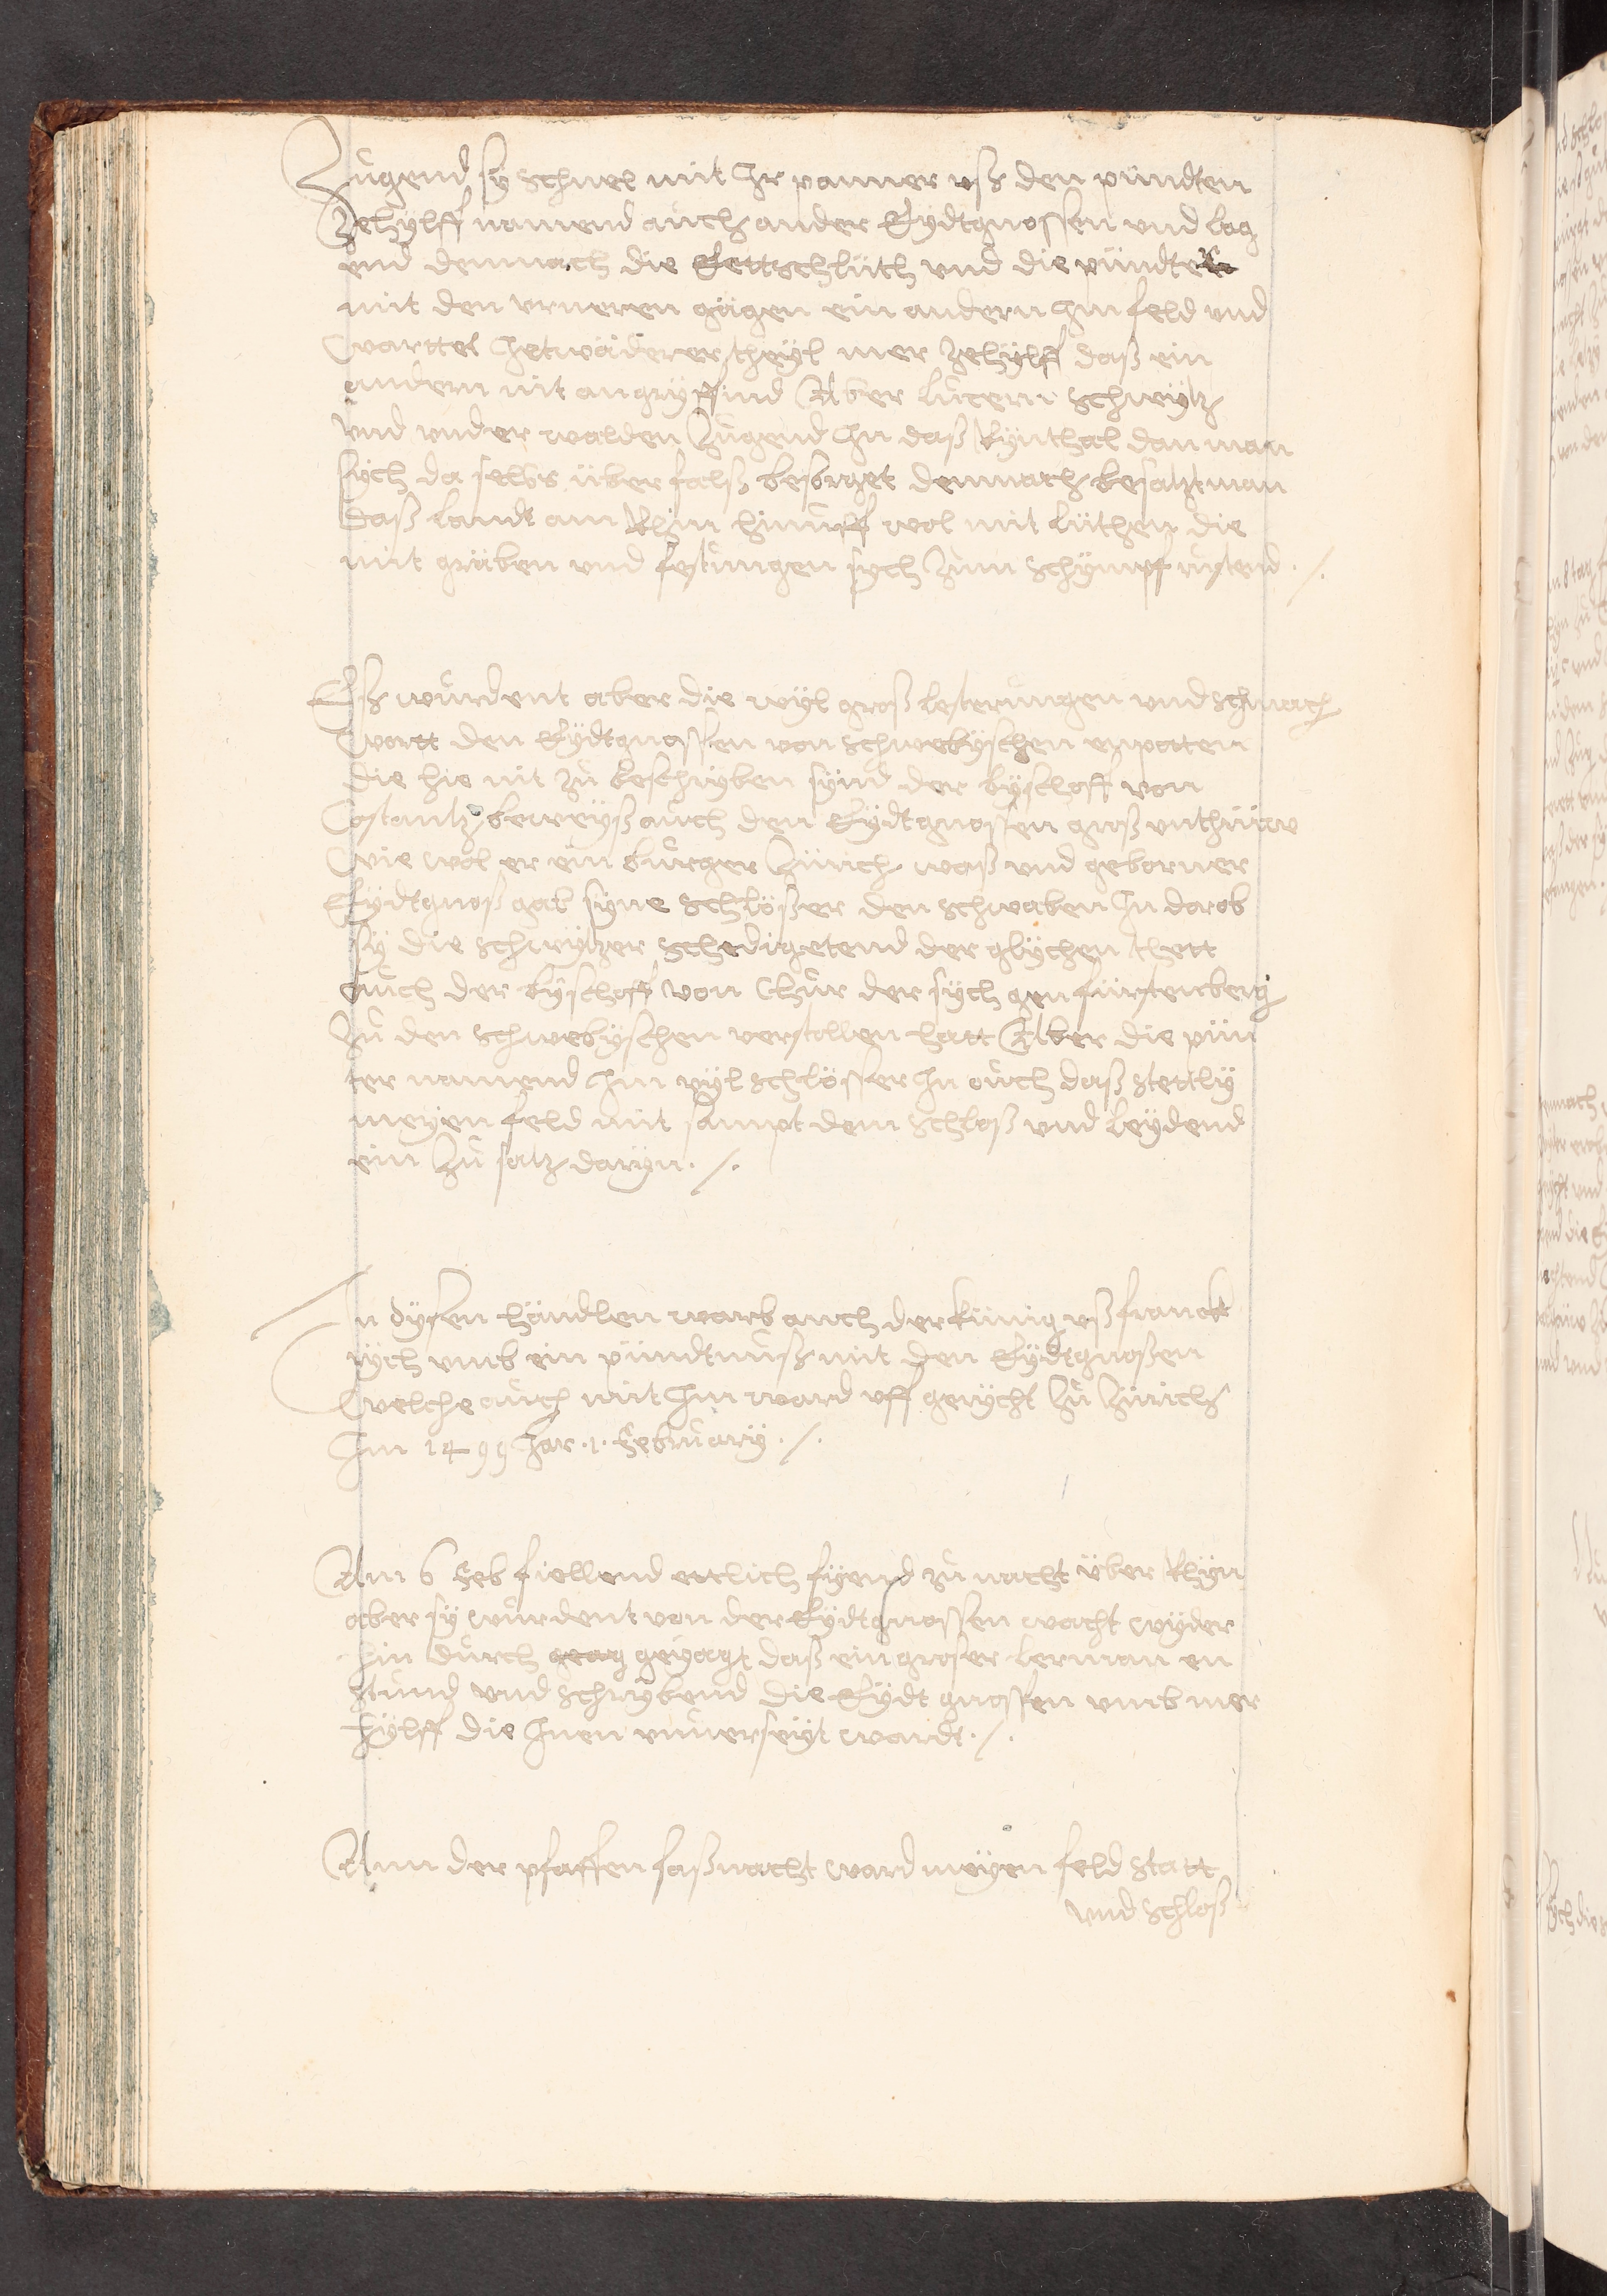 Zugend sy schnel mit Jr panner uß den pündten
Zehylff namend auch ander Eydtgnossen und lag
end demnach die Ettschlüth und die pündter
mit den urneren gägen ein andern Jm feld und
warttet Jetwäderer theyl mer zehylff daß ein
andern nit angryffind Aber lucern schwytz
und underwalden Zugend Jn daß Rynthal dan man
sych da selbs überfalß besorget demnach besatzt man
daß landt am Rhin hinuff wol mit lüthen die
mit gräben und festungen sych zum schympf rustend ./.
Eß wurdent aber die wyl groß lesterungen und schmach
wortt den Eydtgnossen von schwebyschen enpotten
die hie nit zu beschryben synd der byschoff von
Costantz beweyß auch den Eydtgnossen groß unthrüw
wie wol er ein burger Zürich waß und geborner
Eydtgnoß gab syne schlößer den schwaben Jn darob
sy die schwytzer schedigetend der glychen thett
auch der byschoff von Chur der sych gen fürstenberg
zu den schwebyschen verstollen hatt Aber die pün
ter namend Jm vyl schlösser Jn ouch daß stettly
meyen feld mit sampt dem schloß und leydend
ein zu satz daryn ./.
Jn dysen händlen warb auch der künig uß franck
rych umb ein pündtnuß mit den Eydtgnoßen
welche auch mit Jm ward uff gericht zu Zürich
Jm 1499 Jar .1. February ./.
Am 6 Feb fiellend ettlich fyend zu nacht über Rhyn
aber sy wurdent von der Eydtgnossen wacht wyder
hin durch geag geyagt daß ein groser lerman en
stund und schrybend die Eydtgnossen umb mer
hylff die Jnen unverseyt wardt ./.
Ann der pfaffen faßnacht ward meyen feld statt
und schloß